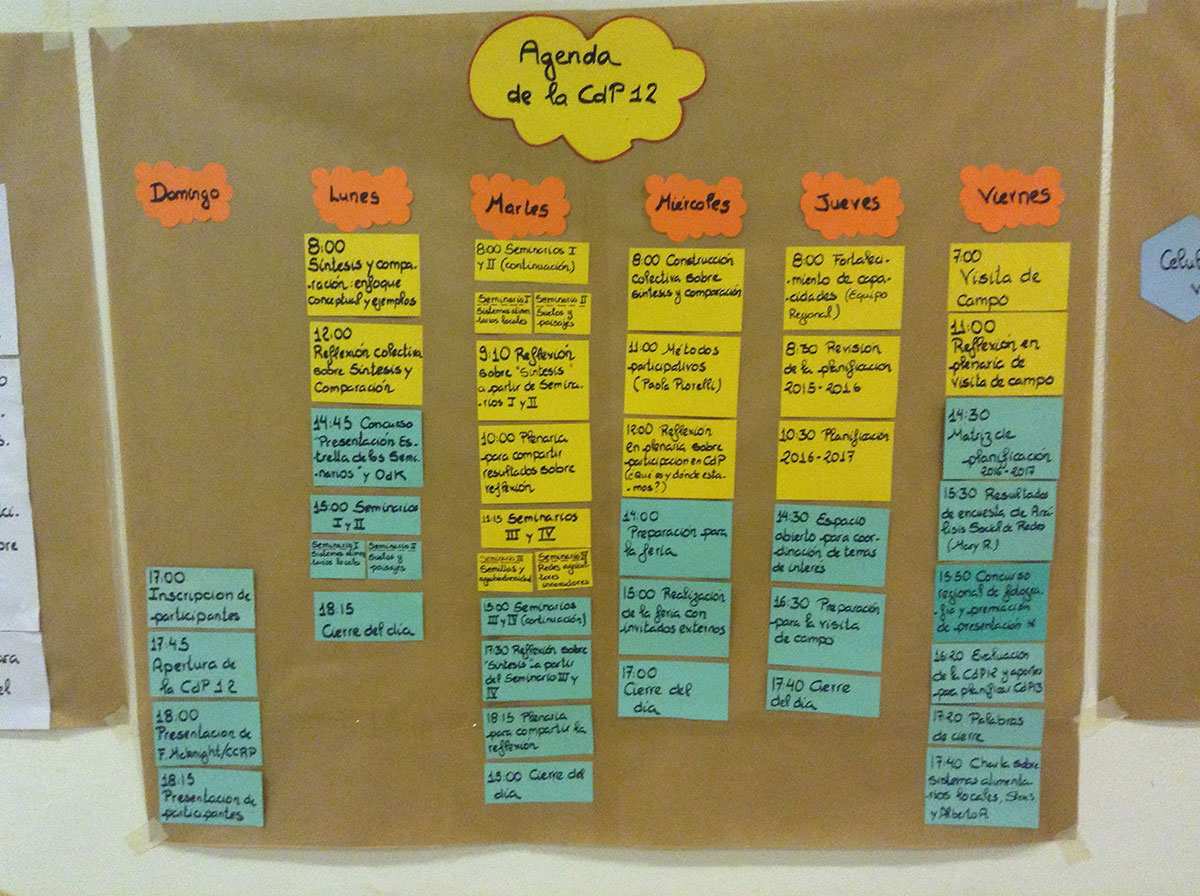 Agenda
de la CdP 12
Domingo
17:00
Inscripcion de
participantes
17:45
Apertura de
la CdP 12
18:00
Presentacion de
F. Mcknight/CCRP
18:15
Presentacion de
participantes
Lunes
8:00
Síntesis y compa-
-ración: enfoque
conceptual y ejemplos
12:00
Reflexión colectiva
sobre Síntesis y
Comparación
14:45 Concurso
"Presentación Es-
trella de los Semi-
-narios" y OdK
15:00 Seminarios
I y II
Seminario I
Sistemas alimen
tarios locales
Seminario II
Suelos y
paisajes
18:15
Cierre del día
Martes
8:00 Seminarios I
y II (continuación)
Seminario I
Sistemas alimen
tarios locales
Seminario II
Suelos y
paisajes
9:10 Reflexión
sobre "Síntesis"
a partir de Semina-
rios I y II
10:00 Plenaria
para compartir
resultados sobre
reflexión
11:15 Seminarios
III y IV
Seminario III
Semillas y
agrobiodiversidad
Seminario IV
Redes agricul
tores
innovadores
15:00 Seminarios
III y IV (continuación)
17:30 Reflexión sobre
"Síntesis" a partir
del Seminario III y
IV
18:15 Plenaria
para compartir la
reflexión
19:00 Cierre del
día
Miércoles
8:00 Construcción
colectiva sobre
síntesis y comparación
11:00 Métodos
participativos
(Paola Piorelli)
12:00 Reflexión
en plenaria sobre
participacion en CdP
(¿Que es y dónde esta-
-mos?)
14:00
Preparación para
la feria
15:00 Realización
de la feria con
invitados externos
17:00
Cierre del
día
Jueves
8:00 Fortaleci-
miento de capa-
cidades (Equipo
Regional)
8:30 Revisión
de la planificacion
2015-2016
10:30 Planificación
2016-2017
14:30 Espacio
abierto para coor-
dinación de temas
de interes
16:30 Preparación
para la visita
de campo
17:40 Cierre
del día
Viernes
7:00
Visita de
Campo
11:00
Reflexión en
plenaria de
visita de campo
14:30
Matriz de
planificación
2016-2017
15:30 Resultados
de encuesta de Aná
lisis Social de Redes
(Mary R.)
15:50 Concurso
regional de fotogra-
-fía y premiación
de presentación *
16:20 Evaluación
de la CdP12 y aportes
para planificar CdP13
17:20 Palabras
de cierre
17:40 Charla sobre
sistemas alimenta
rios locales,
y Alberto A.